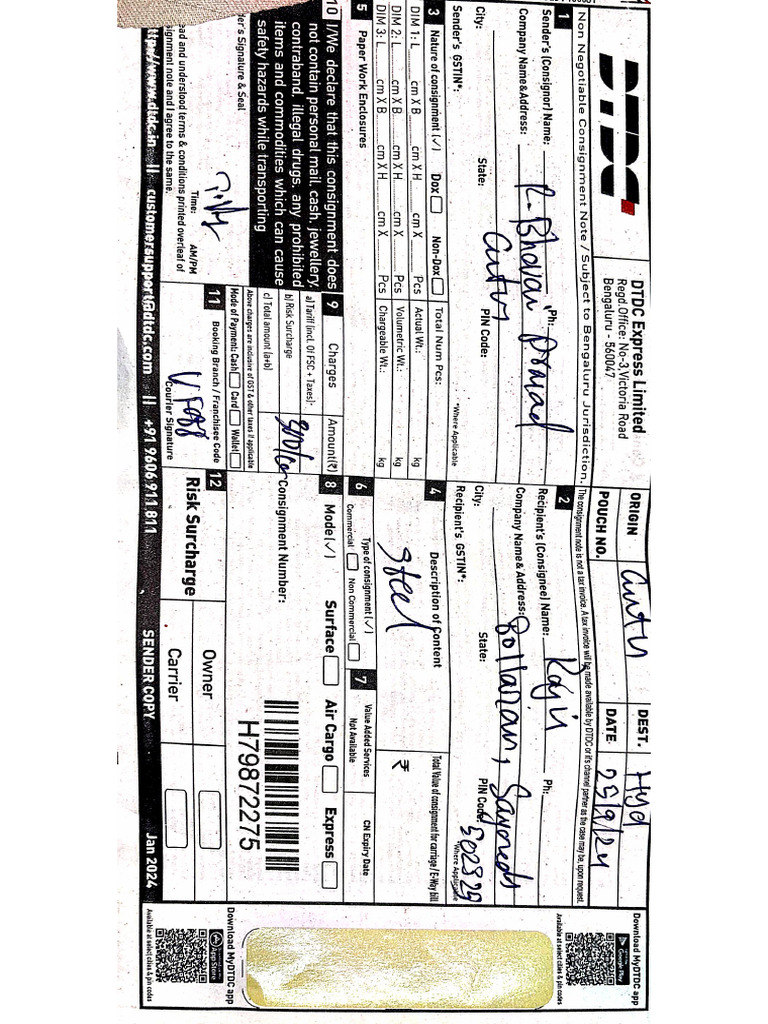 DTDC
DTDC Express Limited
Regd. Office: No-3, Victoria Road
Bengaluru - 560047
ORIGIN
DEST. Hyd
POUCH NO.
DATE 25/9/24
Non Negotiable Consignment Note / Subject to Bengaluru Jurisdiction.
The consignment note is not a tax invoice. A tax invoice will be made available by DTDC or it's channel partner as the case may be, upon request.
1 Sender's (Consignor) Name: Ph:
Company Name & Address:
City: State: PIN Code:
Sender's GSTIN*: *Where Applicable
2 Recipient's (Consignee) Name: Raju Ph:
Company Name & Address: Bollaram,
City: State: PIN Code: 502325
Recipient's GSTIN*: *Where Applicable
3 Nature of consignment (✓) Dox Non-Dox Total Num Pcs:
DIM 1: L cm X B cm X H cm X Pcs Actual Wt.: kg
DIM 2: L cm X B cm X H cm X Pcs Volumetric Wt.: kg
DIM 3: L cm X B cm X H cm X Pcs Chargeable Wt.: kg
4 Description of Content
Steel
Total Value of consignment for carriage / E-Way bill
₹
5 Paper Work Enclosures
6 Type of consignment (✓)
Commercial Non Commercial
7 Value Added Services
Not Available
CN Expiry Date
8 Mode (✓) Surface Air Cargo Express
Consignment Number:
H79872275
9 Charges Amount(₹)
a) Tariff (incl. Of FSC + Taxes):
b) Risk Surcharge
c) Total amount (a+b)
Above charges are inclusive of GST & other taxes if applicable
Mode of Payment: Cash Card Wallet
10 I/We declare that this consignment does
not contain personal mail, cash, jewellery,
contraband, illegal drugs, any prohibited
items and commodities which can cause
safety hazards while transporting
Signature & Seal
and understood terms & conditions printed overleaf of
note and I agree to the same.
Time: AM/PM
11 Booking Branch / Franchisee Code
Courier Signature
12 Risk Surcharge
Owner
Carrier
http://www.dtdc.in || customersupport@dtdc.com || +91 9606 911 811
SENDER COPY
Jan 2024
Download MyDTDC app
Google Play
Available at select cities & pin codes
Download MyDTDC app
App Store
Available at select cities & pin codes